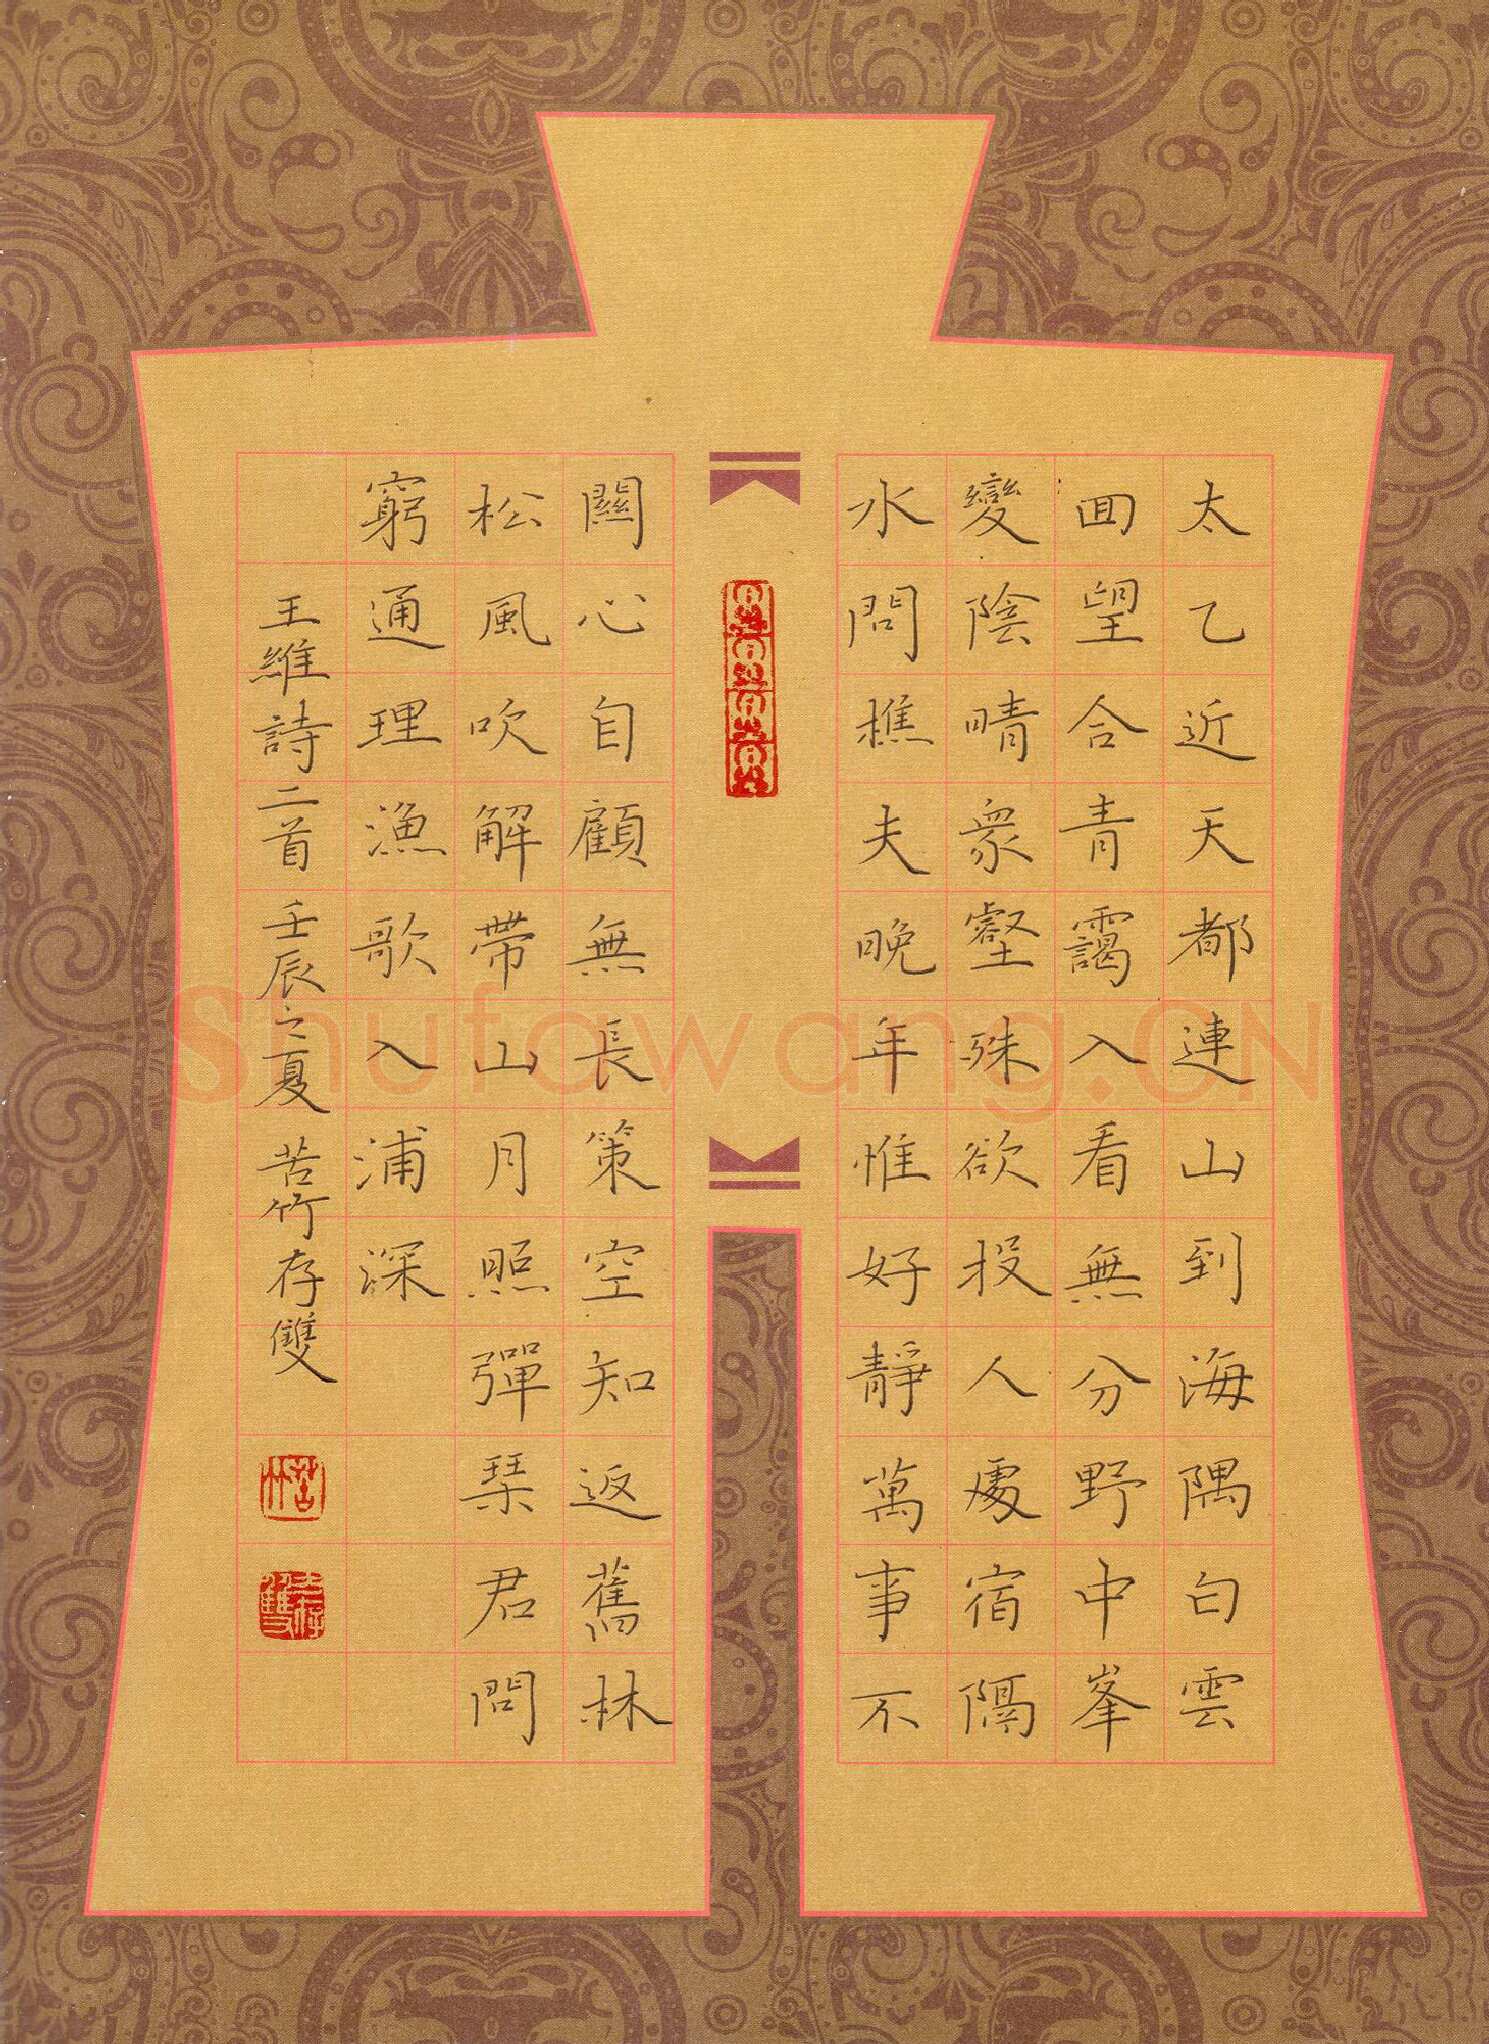 太乙近天都連山到海隅白雲
回望合青靄入看無分野中峯
變陰晴衆壑殊欲投人處宿隔
水問樵夫晚年惟好靜萬事不
關心自顧無長策空知返舊林
松風吹解帶山月照彈琹君問
窮通理漁歌入浦深
王維詩二首 壬辰之夏 苦竹存雙
shufawang.CN